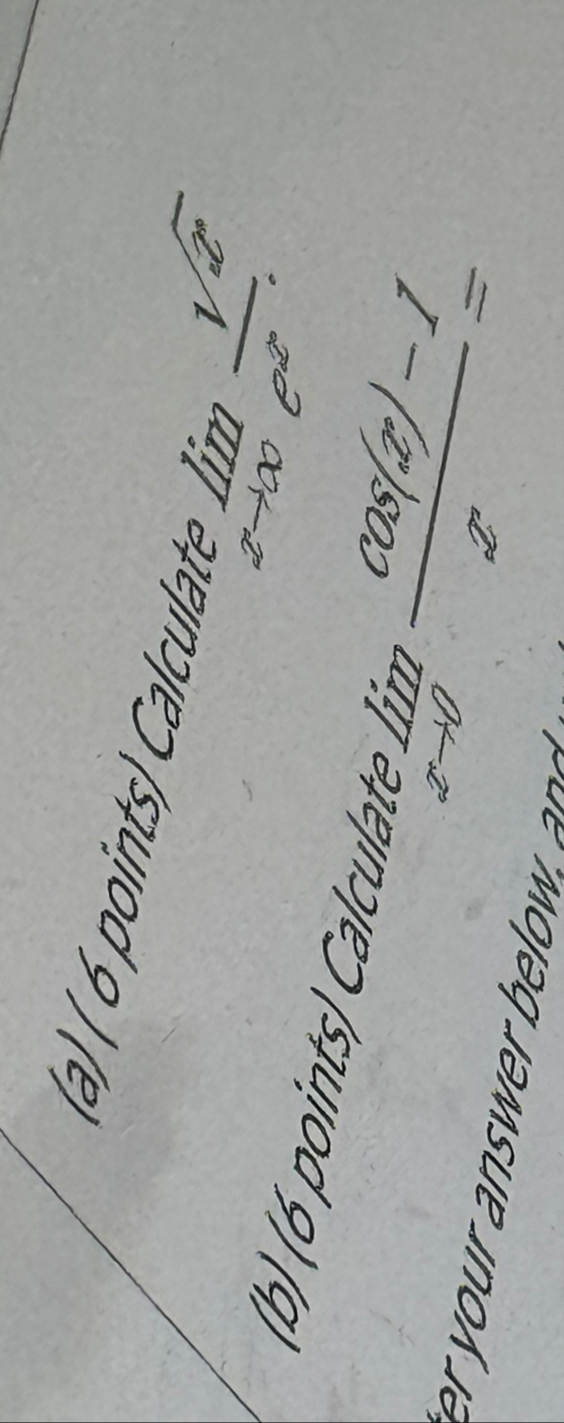 (a) (6 points) Calculate lim x→∞ √x / e^x .
(b) (6 points) Calculate lim x→0 cos(x) - 1 / x =
your answer below, and